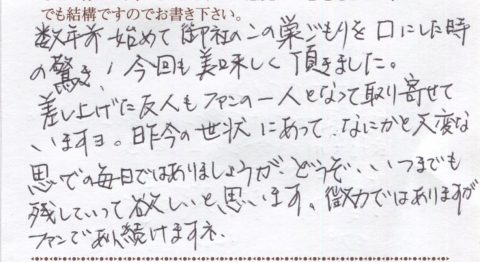 でも結構ですのでお書き下さい。
数年前始めて御社のこの巣ごもりを口にした時
の驚き!今回も美味しく頂きました。
差し上げた友人もファンの一人となって取り寄せて
いますヨ。昨今の世状にあって、なにかと大変な
思いでの毎日ではありましょうが、どうぞ、いつまでも
残していって欲しいと思います。微力ではありますが
ファンであり続けますネ、